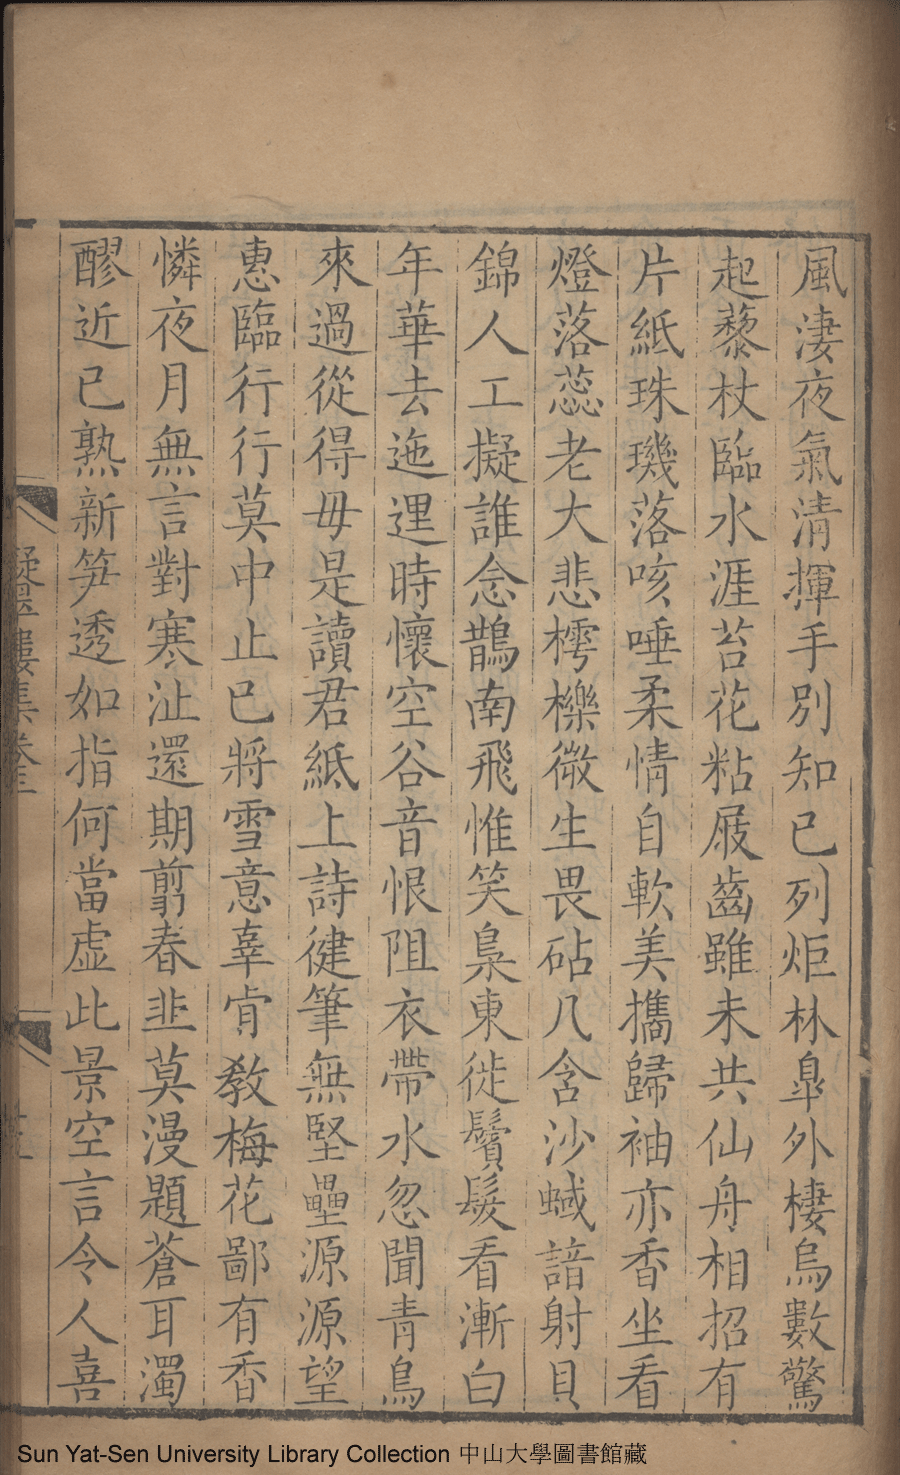 風淒夜氣清揮手別知已列炬林臯外棲烏數驚
起藜杖臨水涯苔花粘屐齒雖未共仙舟相招有
片紙珠璣落咳唾柔情自軟美攜歸袖亦香坐看
燈落蕊老大悲樗櫟微生畏砧八含沙蜮諳射貝
錦人工擬誰念鵲南飛惟笑梟東徙鬢髮看漸白
年華去迤逦時懷空谷音恨阻衣帶水忽聞青鳥
來過從得毋是讀君紙上詩健筆無堅壘源源望
惠臨行行莫中止已將雪意辜肯教梅花鄙有香
憐夜月無言對寒沚還期翦春韭莫漫題蒼耳濁
醪近已熟新笋透如指何當虛此景空言令人喜
樓集卷
Sun Yat-Sen University Library Collection 中山大學圖書館藏